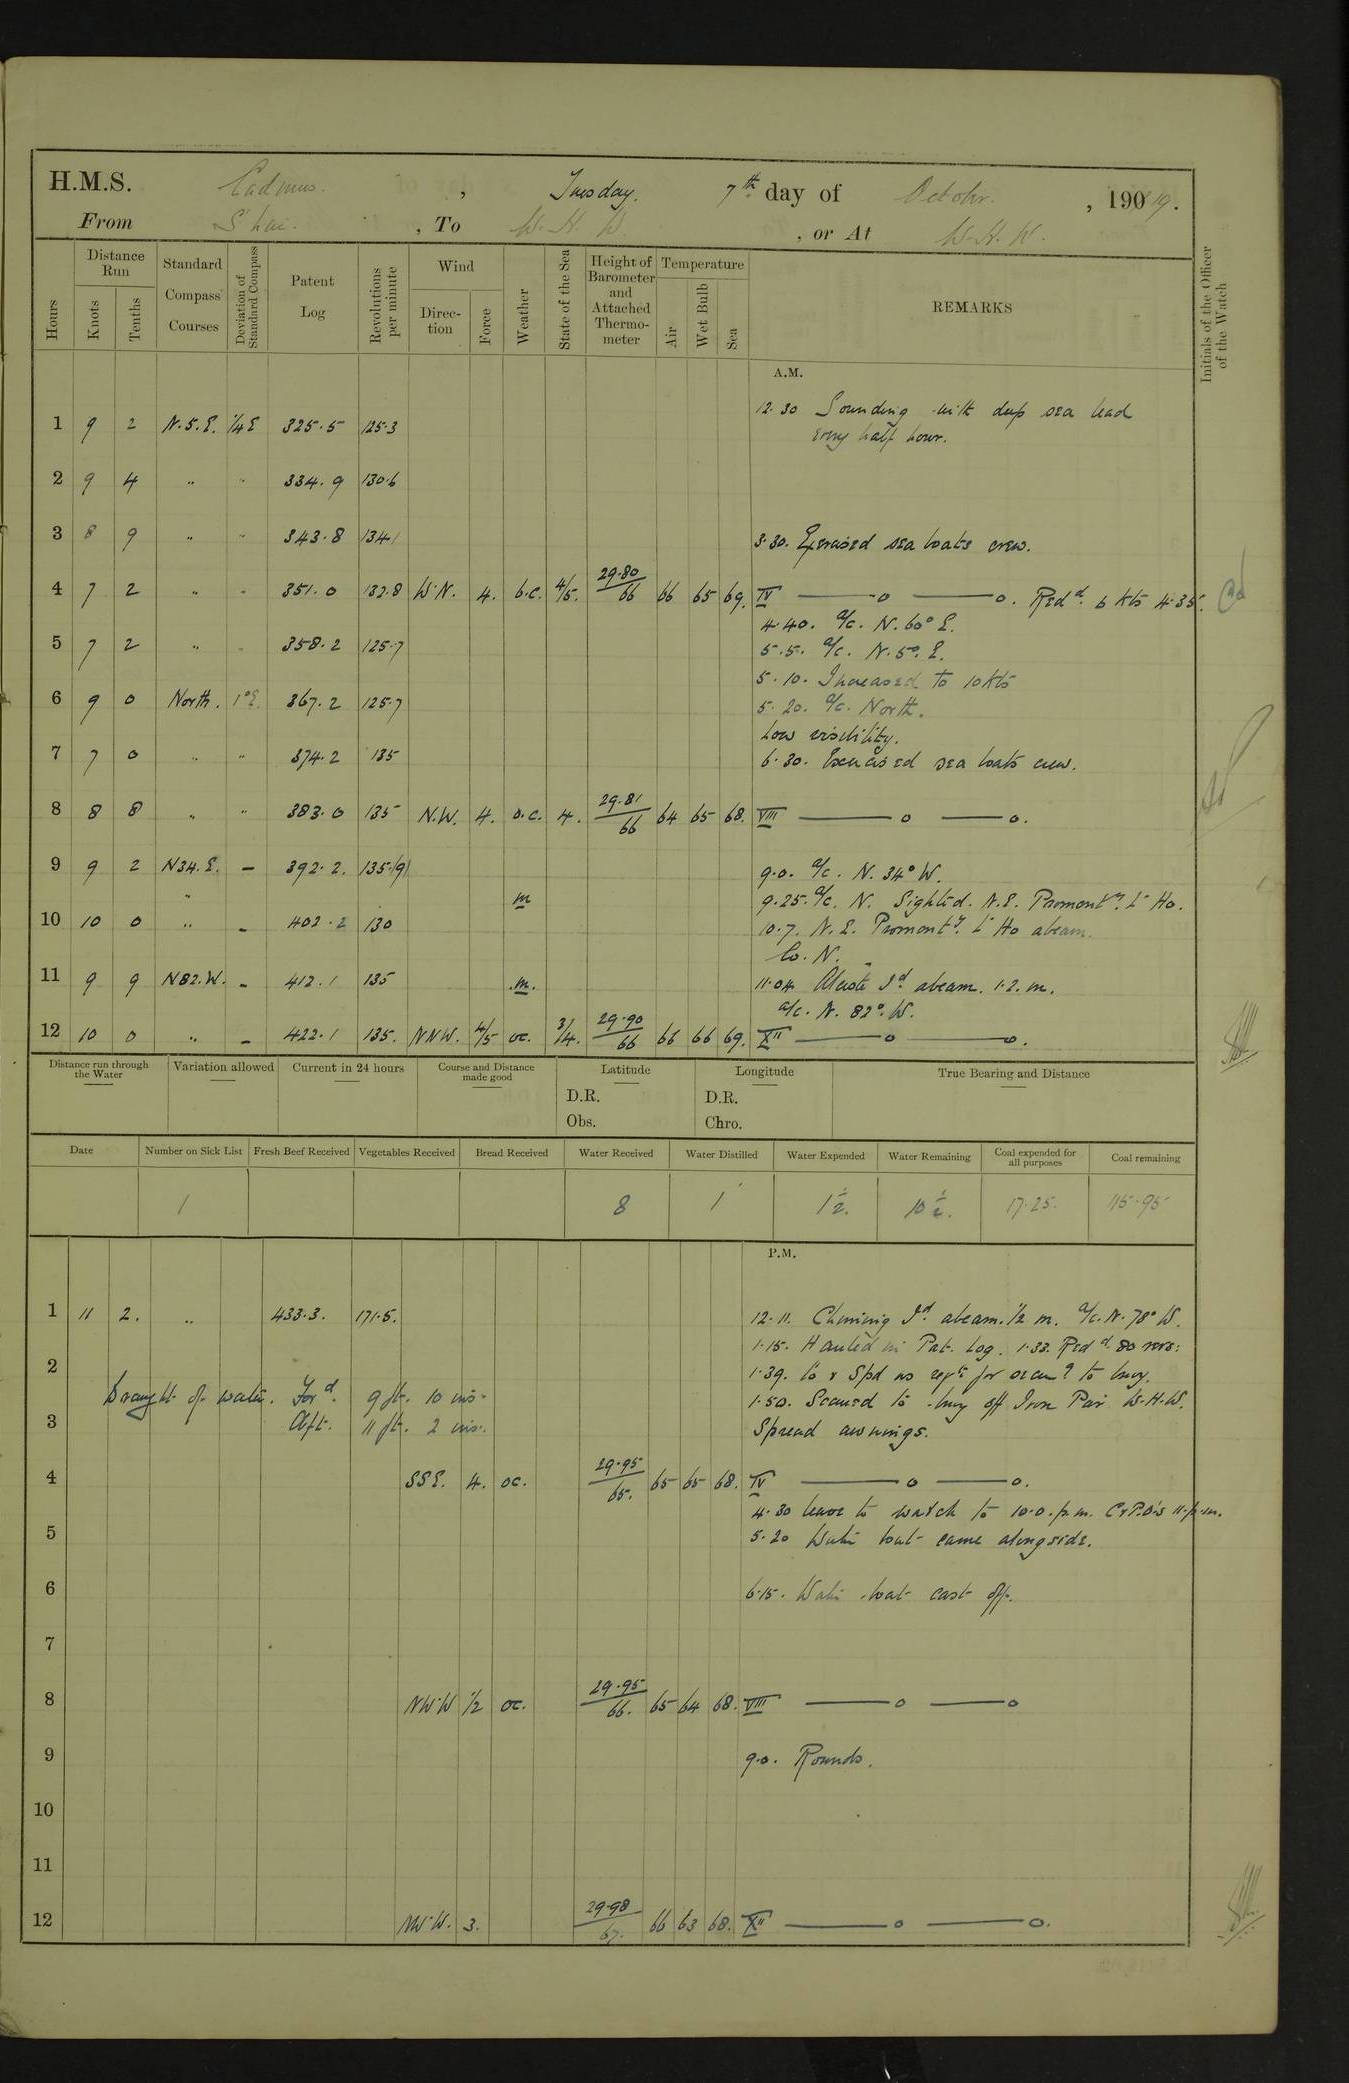 H.M.S. Cadmus. , Tuesday. 7th day of October. , 190 19.
From S'hai. , To W. H. W. , or At W. H. W.
Hours
Distance Run
Knots
Tenths
Standard Compass Courses
Deviation of Standard Compass
Patent Log
Revolutions per minute
Wind
Direction
Force
Weather
State of the Sea
Height of Barometer and Attached Thermometer
Temperature
Air
Wet Bulb
Sea
REMARKS
Initials of the Officer of the Watch
A.M.
12.30 Sounding with deep sea lead
every half hour.
1 9 2 N.5.E. 1/4 E 325.5 125.3
2 9 4 " " 334.9 130.6
3 8 9 " " 343.8 134.1
3.30. Exercised sea boats crew.
4 7 2 " " 351.0 132.8 W.N. 4. b.c. 4/5. 29.80/66 66 65 69. IV —o —o. Redd. 6 kts 4.35.
4.40. a/c. N. 60° E.
5 7 2 " " 358.2 125.7 5.5. a/c. N. 5°. E.
5.10. Increased to 10 kts
6 9 0 North. 1°E. 367.2 125.7 5.20. a/c. North.
Low visibility.
7 7 0 " " 374.2 135 6.30. Exercised sea boats crew.
8 8 8 " " 383.0 135 N.W. 4. o.c. 4. 29.81/66 64 65 68. VIII —o —o.
9 9 2 N34.E. – 392.2. 135.(9) 9.0. a/c. N. 34° W.
" m 9.25. a/c. N. Sighted. N.E. Promonty. Lt Ho.
10 10 0 " – 402.2 130 10.7. N.E. Promonty. Lt Ho abeam.
Co. N.
11 9 9 N82.W. – 412.1 135 m. 11.04 Alceste Id. abeam. 1.2. m.
a/c. N. 82°. W.
12 10 0 " – 422.1 135. NNW. 4/5 oc. 3/4. 29.90/66 66 66 69. XII —o —o.
Distance run through the Water
Variation allowed
Current in 24 hours
Course and Distance made good
Latitude
D.R.
Obs.
Longitude
D.R.
Chro.
True Bearing and Distance
Date
Number on Sick List
Fresh Beef Received
Vegetables Received
Bread Received
Water Received
Water Distilled
Water Expended
Water Remaining
Coal expended for all purposes
Coal remaining
1 8 1 1 1/2. 10 1/2. 17.25. 115.95
P.M.
1 11 2. " 433.3. 171.5. 12.11. Id. abeam. 1/2 m. a/c. N. 78° W.
1.15. Hauled in Pat. Log. 1.33. Redd. 80 revs:
2 1.39. Co & Spd as reqte for to buoy.
Draught of water. Ford. 9 ft. 10 ins. 1.50. Secured to buoy off Iron Pier W.H.W.
3 Aft. 11 ft. 2 ins. Spread awnings.
4 SSE. 4. oc. 29.95/65. 65 65 68. IV —o —o.
4.30 leave to watch to 10.0. p.m. C & P.O's 11. p.m.
5 5.20 Water boat came alongside.
6 6.15. Water boat cast off.
7
8 NW.W 1/2 oc. 29.95/66. 65 64 68. VIII —o —o
9 9.0. Rounds.
10
11
12 NW.W. 3. 29.98/67. 66 63 68. XII —o —o.